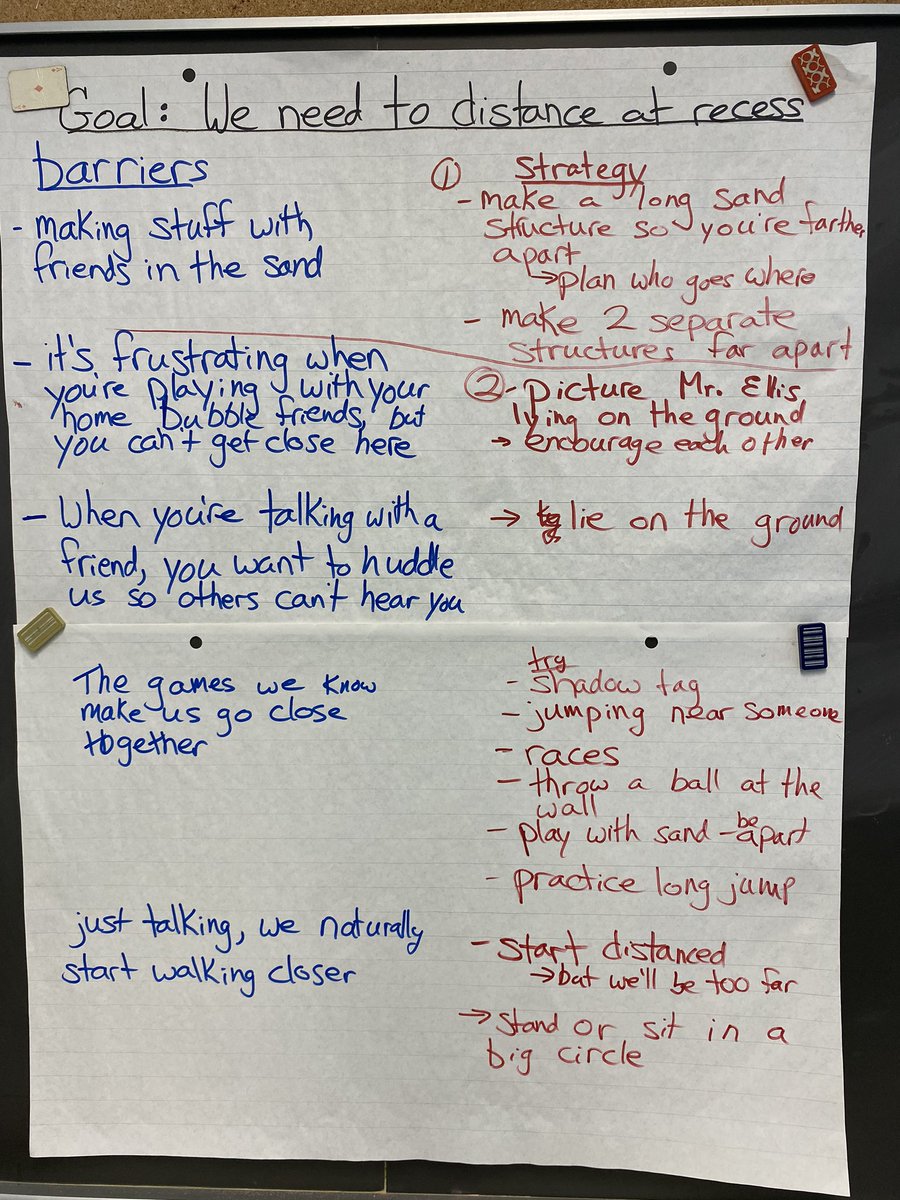 Goal: We need to distance at recess
barriers
- making stuff with
friends in the sand
- it's frustrating when
you're playing with your
home bubble friends, but
you can't get close here
- When you're talking with a
friend, you want to huddle
us so others can't hear you
The games we know
make us go close
together
just talking, we naturally
start walking closer
① Strategy
- make a long sand
structure so you're farther
apart
→ plan who goes where
- make 2 separate
structures far apart
② - Picture Mr. Ellis
lying on the ground
→ encourage each other
→ lie on the ground
try
- shadow tag
- jumping near someone
- races
- throw a ball at the
wall
- play with sand - be apart
- practice long jump
- Start distanced
→ but we'll be too far
→ Stand or sit in a
big circle